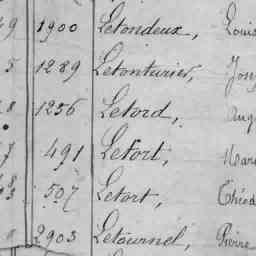 9 1900 Letondeux, Louis
8 1289 Letonturier, Jos
8 1256 Letord, Aug
7 491 Letort, Mari
3 507 Letort, Théod
2903 Letournel, Pierre